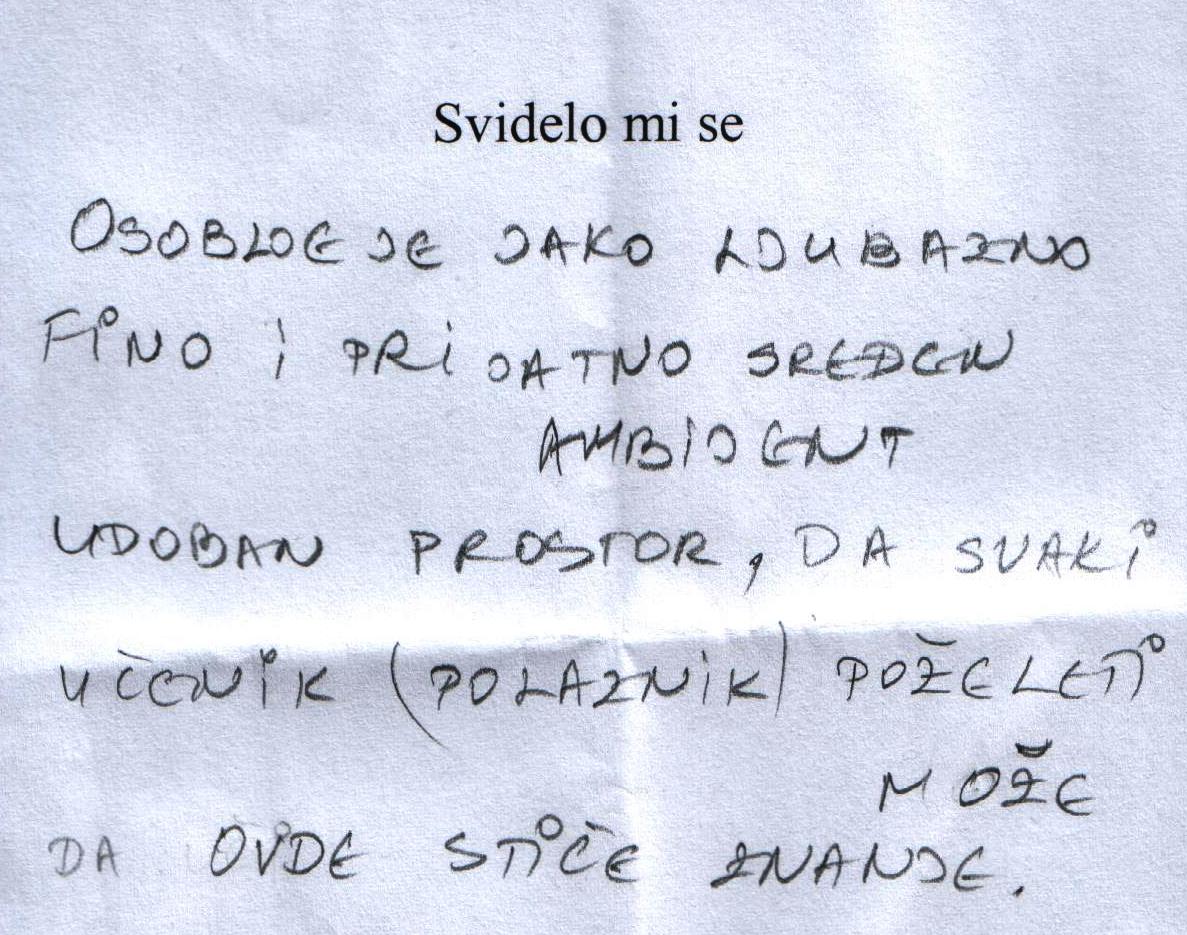 Svidelo mi se
OSOBLOE JE JAKO LJUBAZNO
FINO i PRiJATNO SREDEN
AMBIJENT
UDOBAN PROSTOR, DA SVAKi
UČENiK (POLAZNiK) POŽELETi
MOŽE
DA OVDE STiČE ZNANJE.